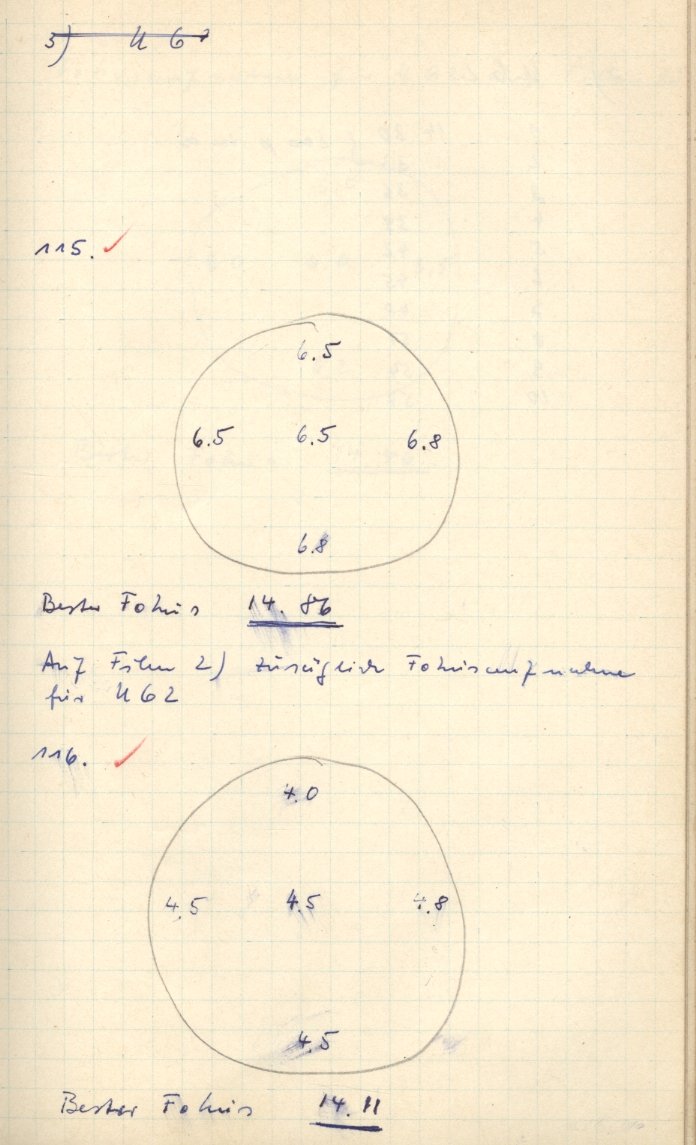 3) U G 2
115.
6.5
6.5 6.5 6.8
6.8
Bester Fokus 14.86
Auf Film 2) zusäglich Fokusaufnahme
für UG2
116.
4.0
4.5 4.5 4.8
4.5
Bester Fokus 14.11